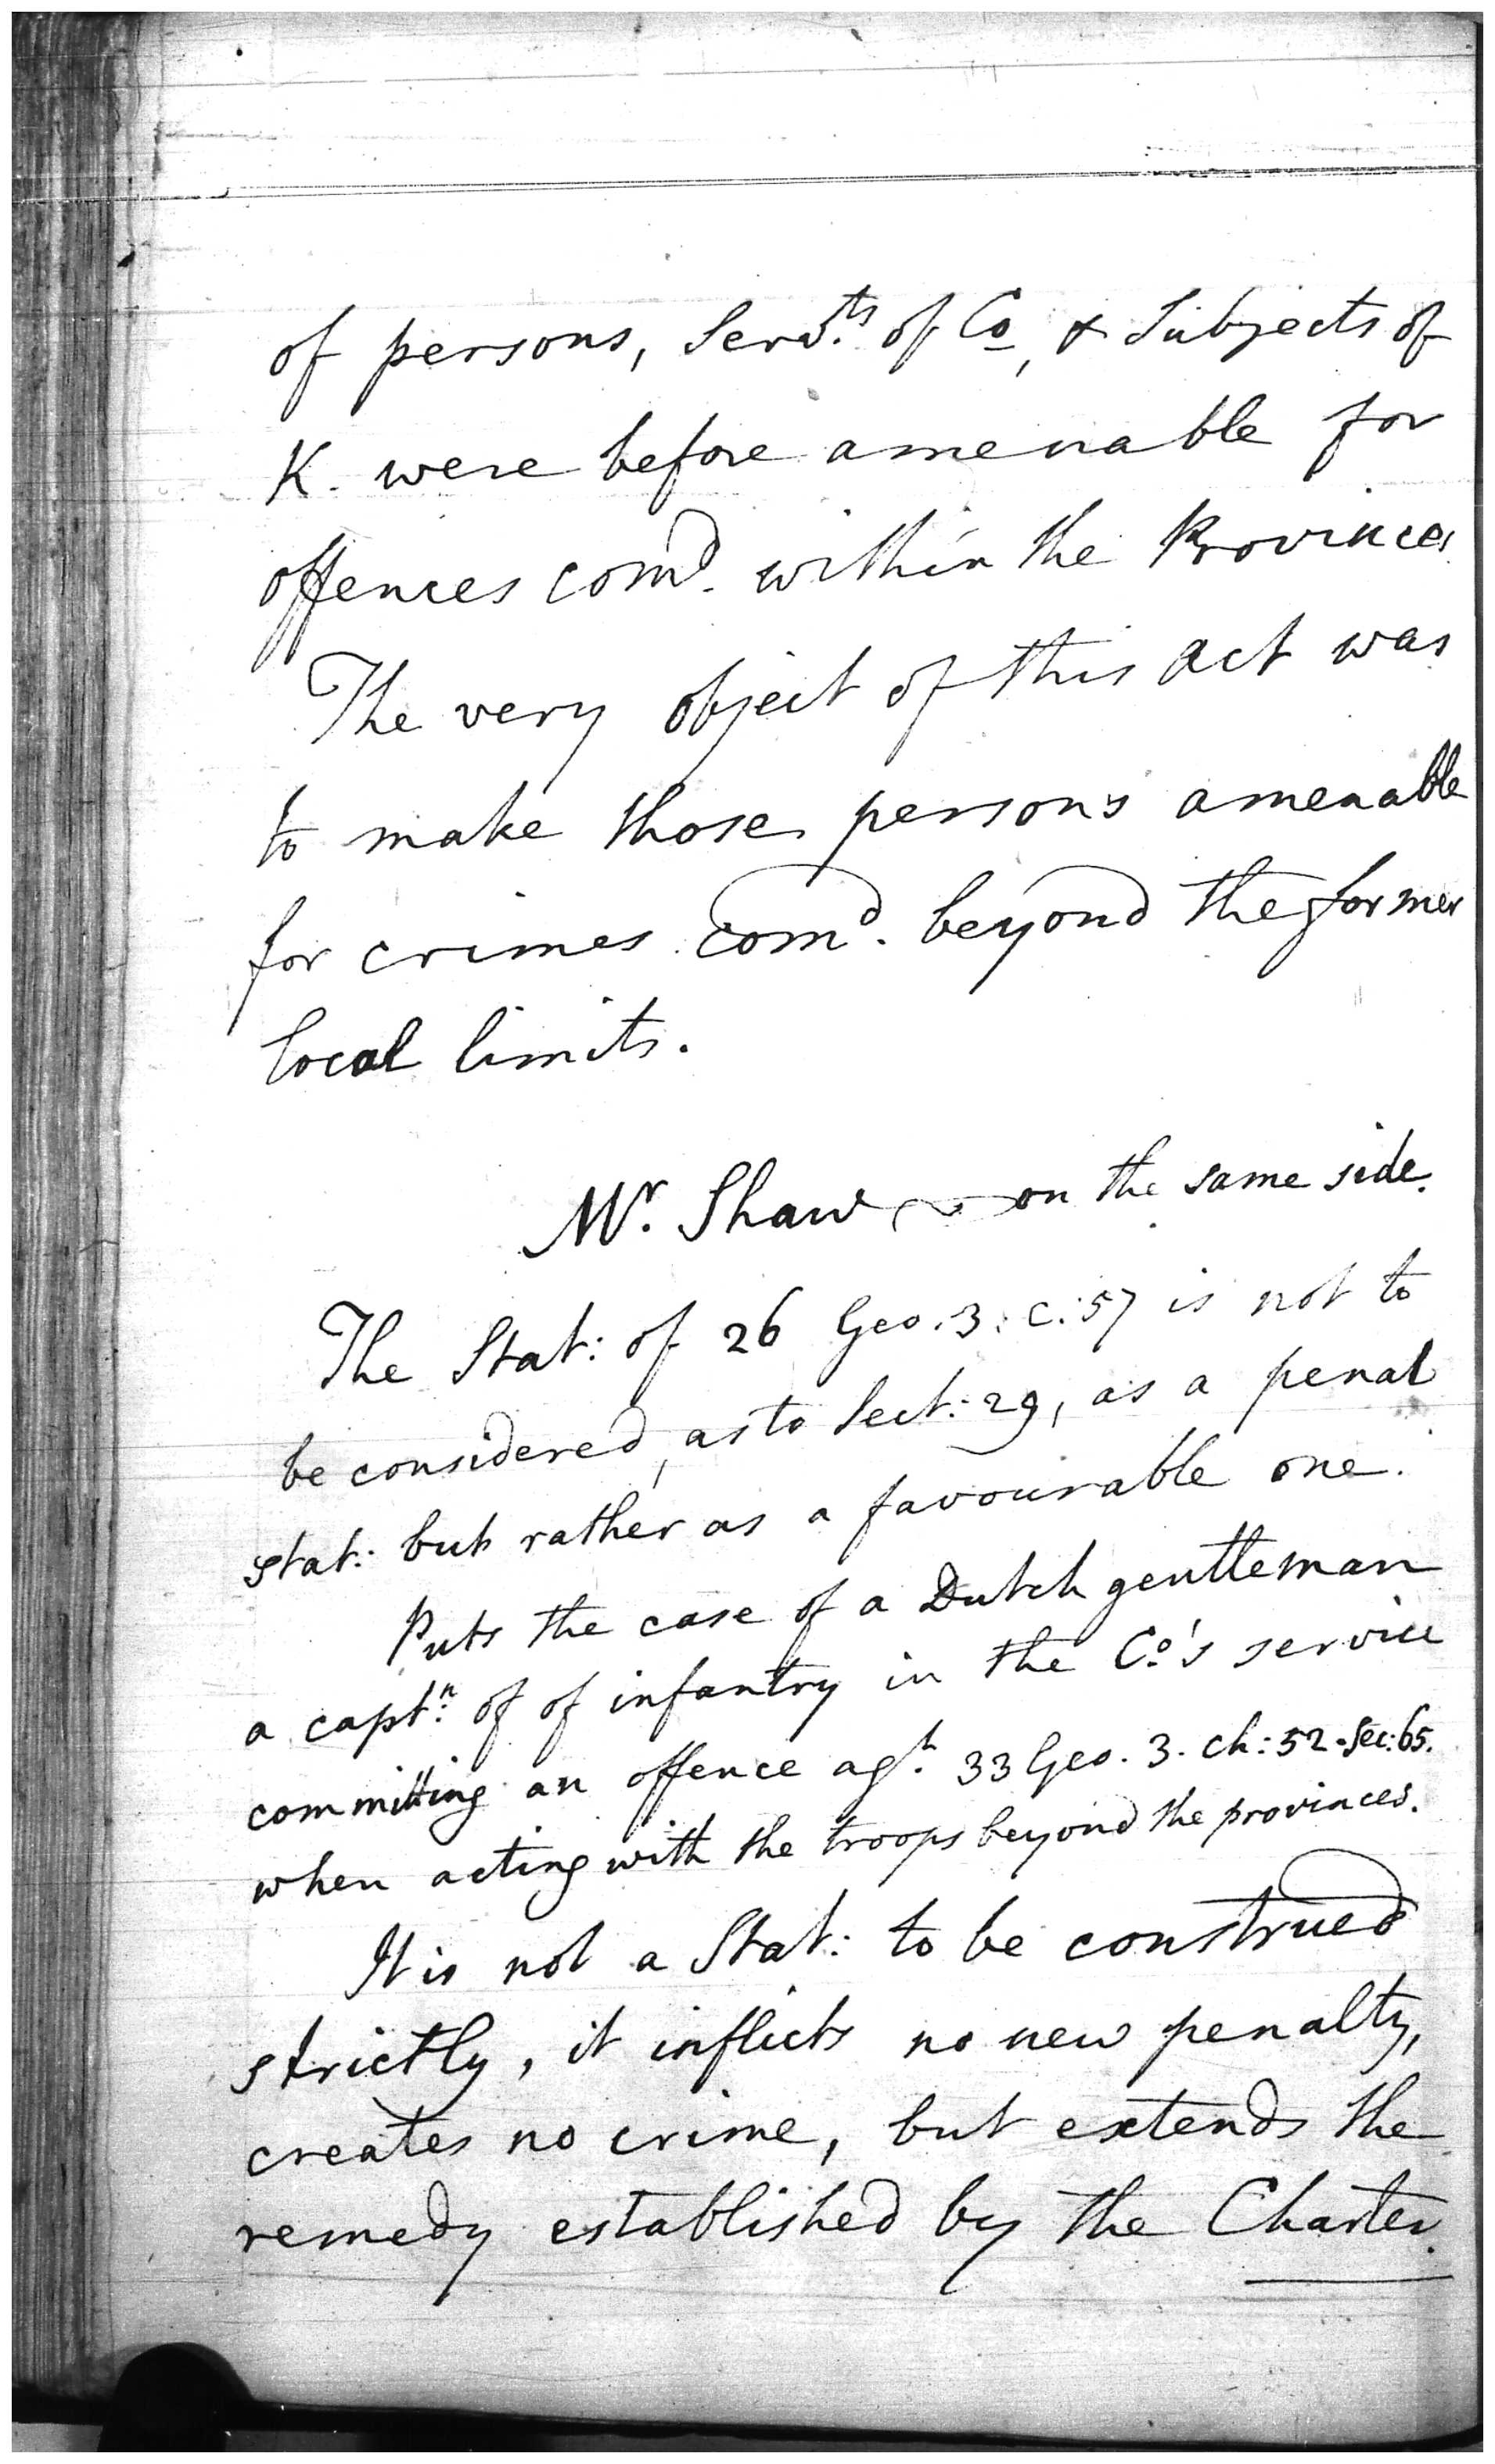 of persons, Servts. of Co, & Subjects of
K. were before amenable for
offences comd. within the Provinces
The very object of this act was
to make those persons amenable
for crimes comd. beyond the former
local limits.
Mr. Shaw on the same side.
The Stat: of 26 Geo. 3: c: 57 is not to
be considered, as to Sect: 29, as a penal
stat: but rather as a favourable one.
Puts the case of a Dutch gentleman
a captn. of of infantry in the Co's service
committing an offence agt. 33 Geo. 3. ch: 52. Sec: 65.
when acting with the troops beyond the provinces.
It is not a Stat: to be construed
strictly, it inflicts no new penalty,
creates no crime, but extends the
remedy established by the Charter.